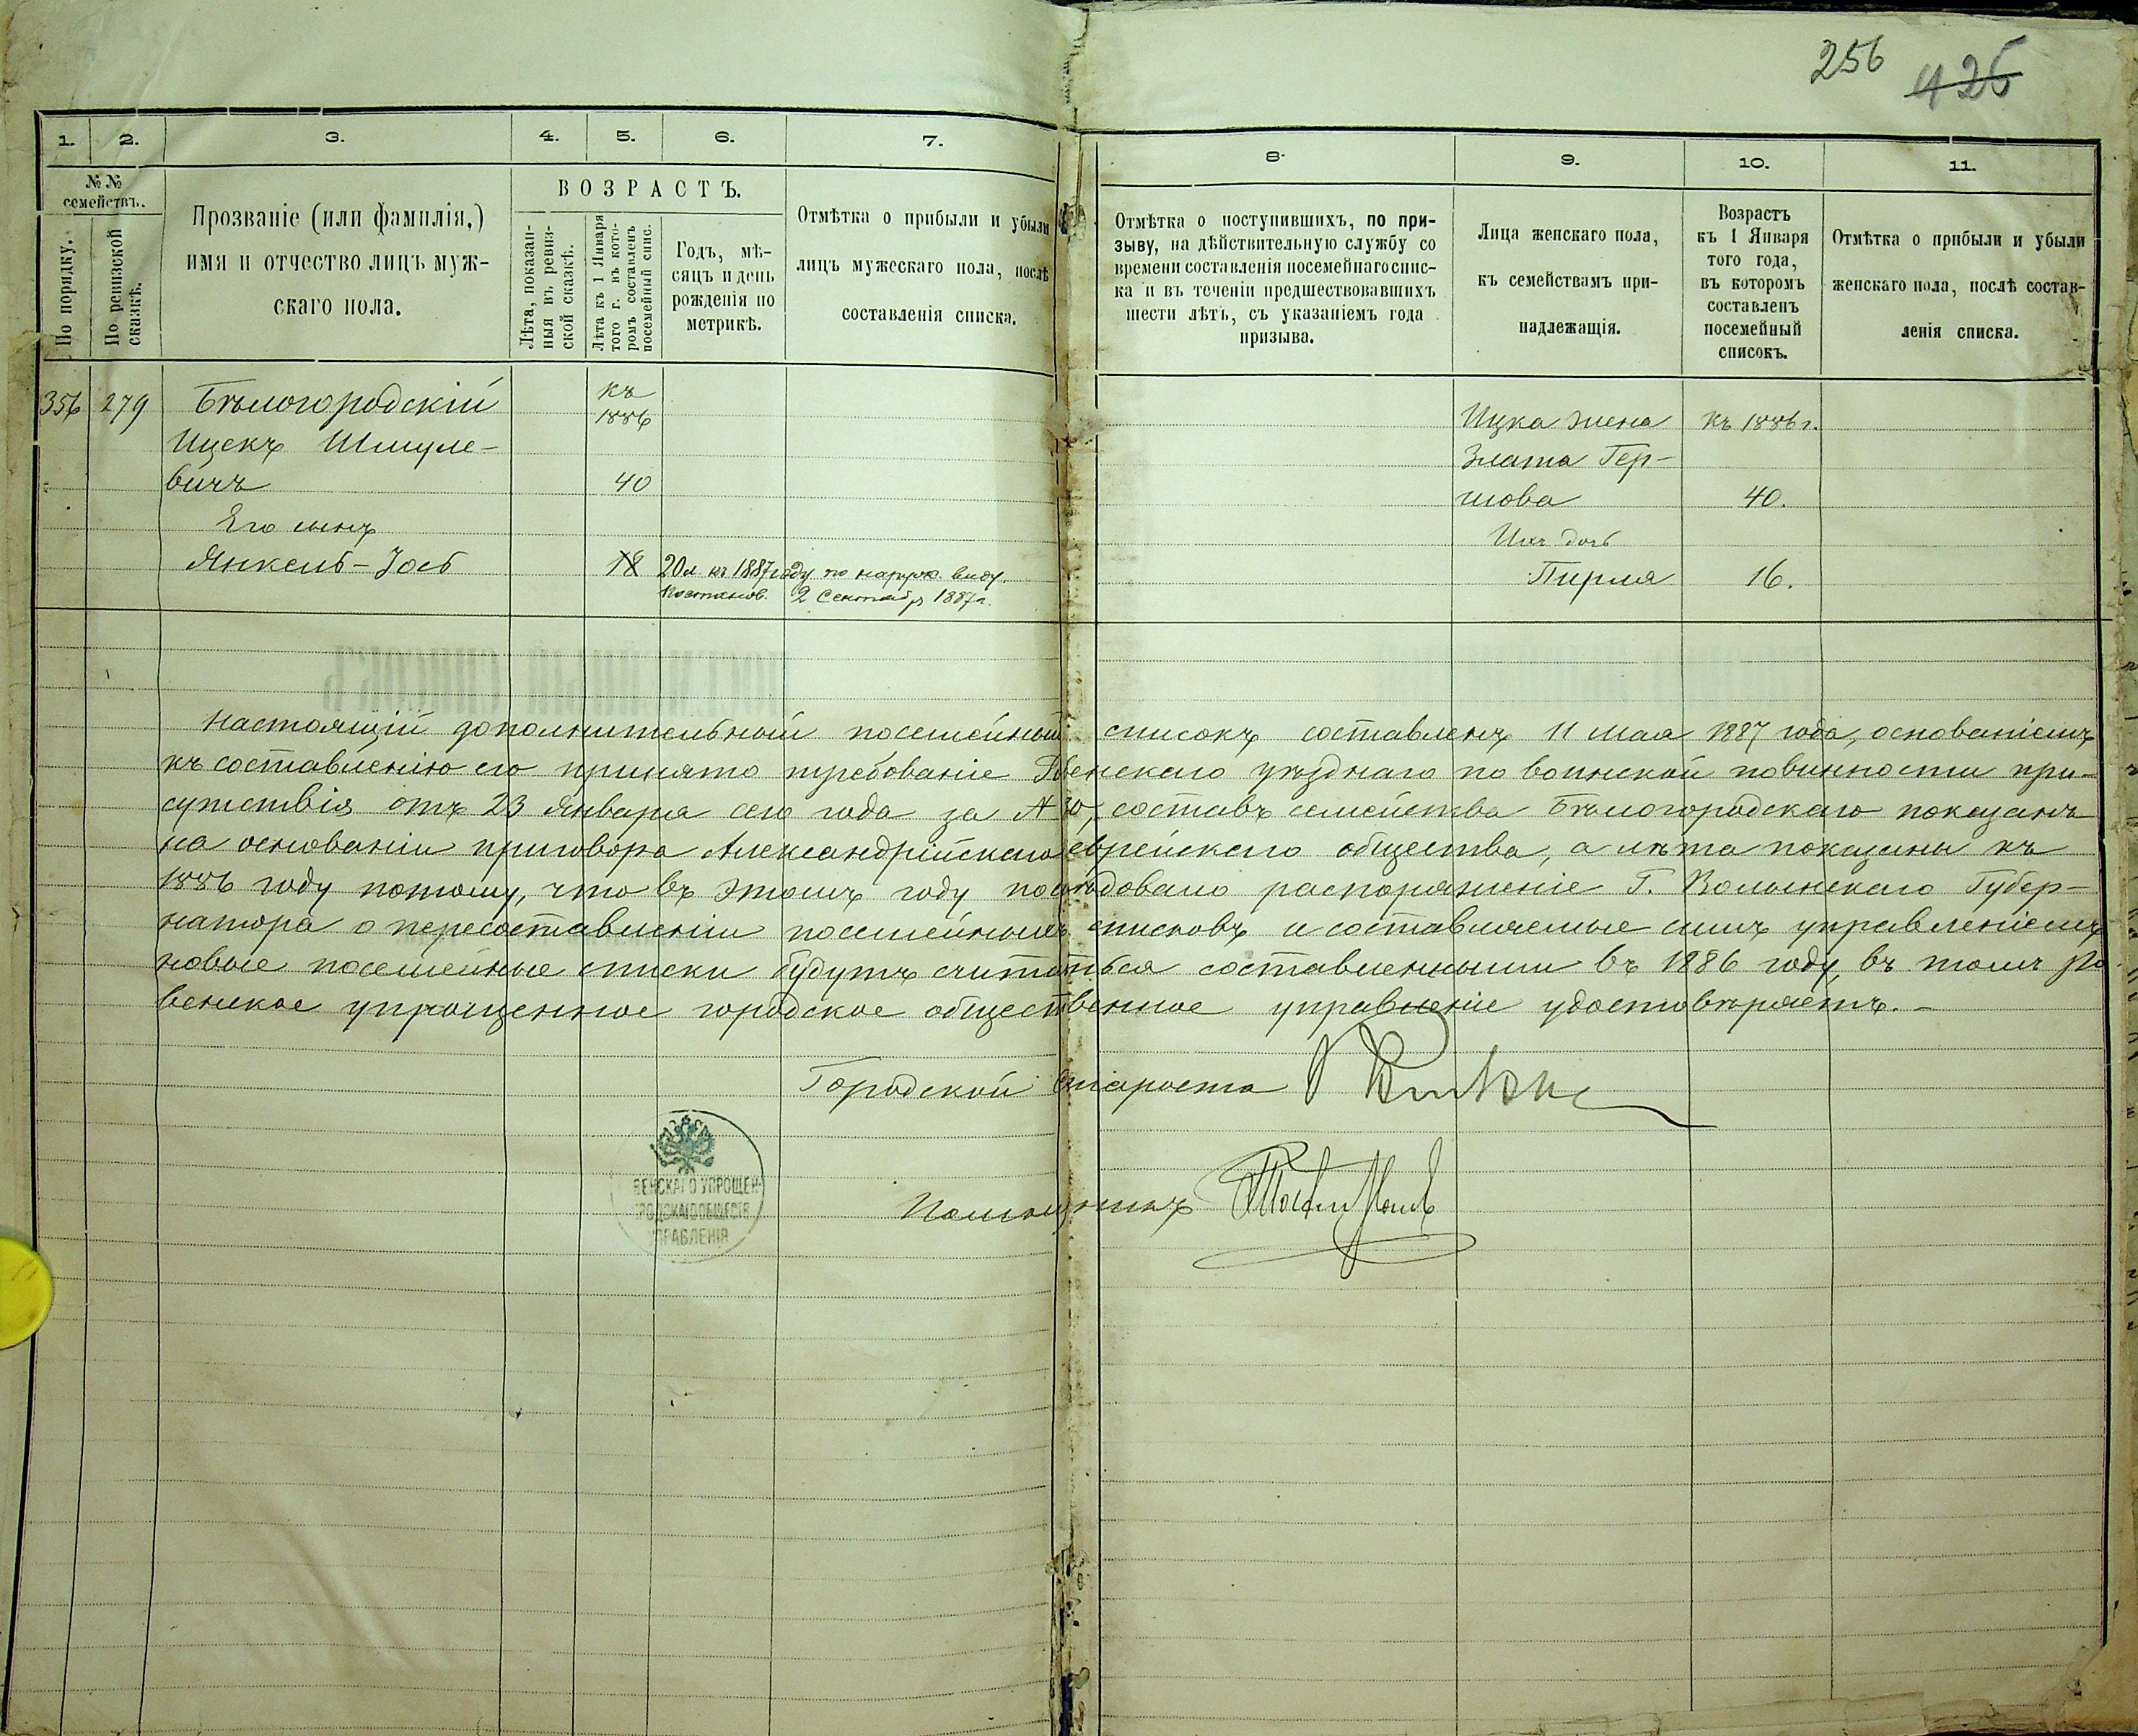 256 425
1. 2. 3. 4. 5. 6. 7. 8. 9. 10. 11.
№ № семействъ.
По порядку.
По ревизской сказкѣ.
Прозваніе (или фамилія,)
имя и отчество лицъ муж-
скаго пола.
ВОЗРАСТЪ.
Лѣта, показан-
ныя въ ревиз-
ской сказкѣ.
Лѣта къ 1 Января
того г. въ кото-
ромъ составленъ
посемейный спис.
Годъ, мѣ-
сяцъ и день
рожденія по
метрикѣ.
Отмѣтка о прибыли и убыли
лицъ мужескаго пола, послѣ
составленія списка.
Отмѣтка о поступившихъ, по при-
зыву, на дѣйствительную службу со
времени составленія посемейнаго спис-
ка и въ теченіи предшествовавшихъ
шести лѣтъ, съ указаніемъ года
призыва.
Лица женскаго пола,
къ семействамъ при-
надлежащія.
Возрастъ
къ 1 Января
того года,
въ которомъ
составленъ
посемейный
списокъ.
Отмѣтка о прибыли и убыли
женскаго пола, послѣ состав-
ленія списка.
356 279 Бѣлогородскій къ 1886
Ицекъ Шмуле-
вичъ 40
Его сынъ
Янкель-Іось 18 20 л къ 1887 году по наруж. виду.
Постанов. 2 Сентябр 1887 г.
Ицка жена къ 1886 г.
Злата Гер-
шова 40.
Ихъ дочь
Пирля 16.
Настоящій дополнительный посемейный списокъ составленъ 11 Мая 1887 года, основаніемъ
къ составленію его принято требованіе Ровенскаго уѣзднаго по воинской повинности при-
сутствія отъ 23 Января сего года за № 30, составъ семейства Бѣлогородскаго показанъ
на основаніи приговора Александрійскаго еврейскаго общества, а лѣта показаны къ
1886 году потому, что въ этомъ году послѣдовало распоряженіе Г. Волынскаго Губер-
натора о пересоставленіи посемейныхъ списковъ и составляемые симъ управленіемъ
новые посемейные списки будутъ считаться составленными въ 1886 году, въ томъ Ро
венское упрощенное городское общественное управленіе удостовѣряетъ.-
Городской Староста
Помощникъ
ВЕНСКАГО УПРОЩЕН
РОДСКАГО ОБЩЕСТВ
УПРАВЛЕНІЯ